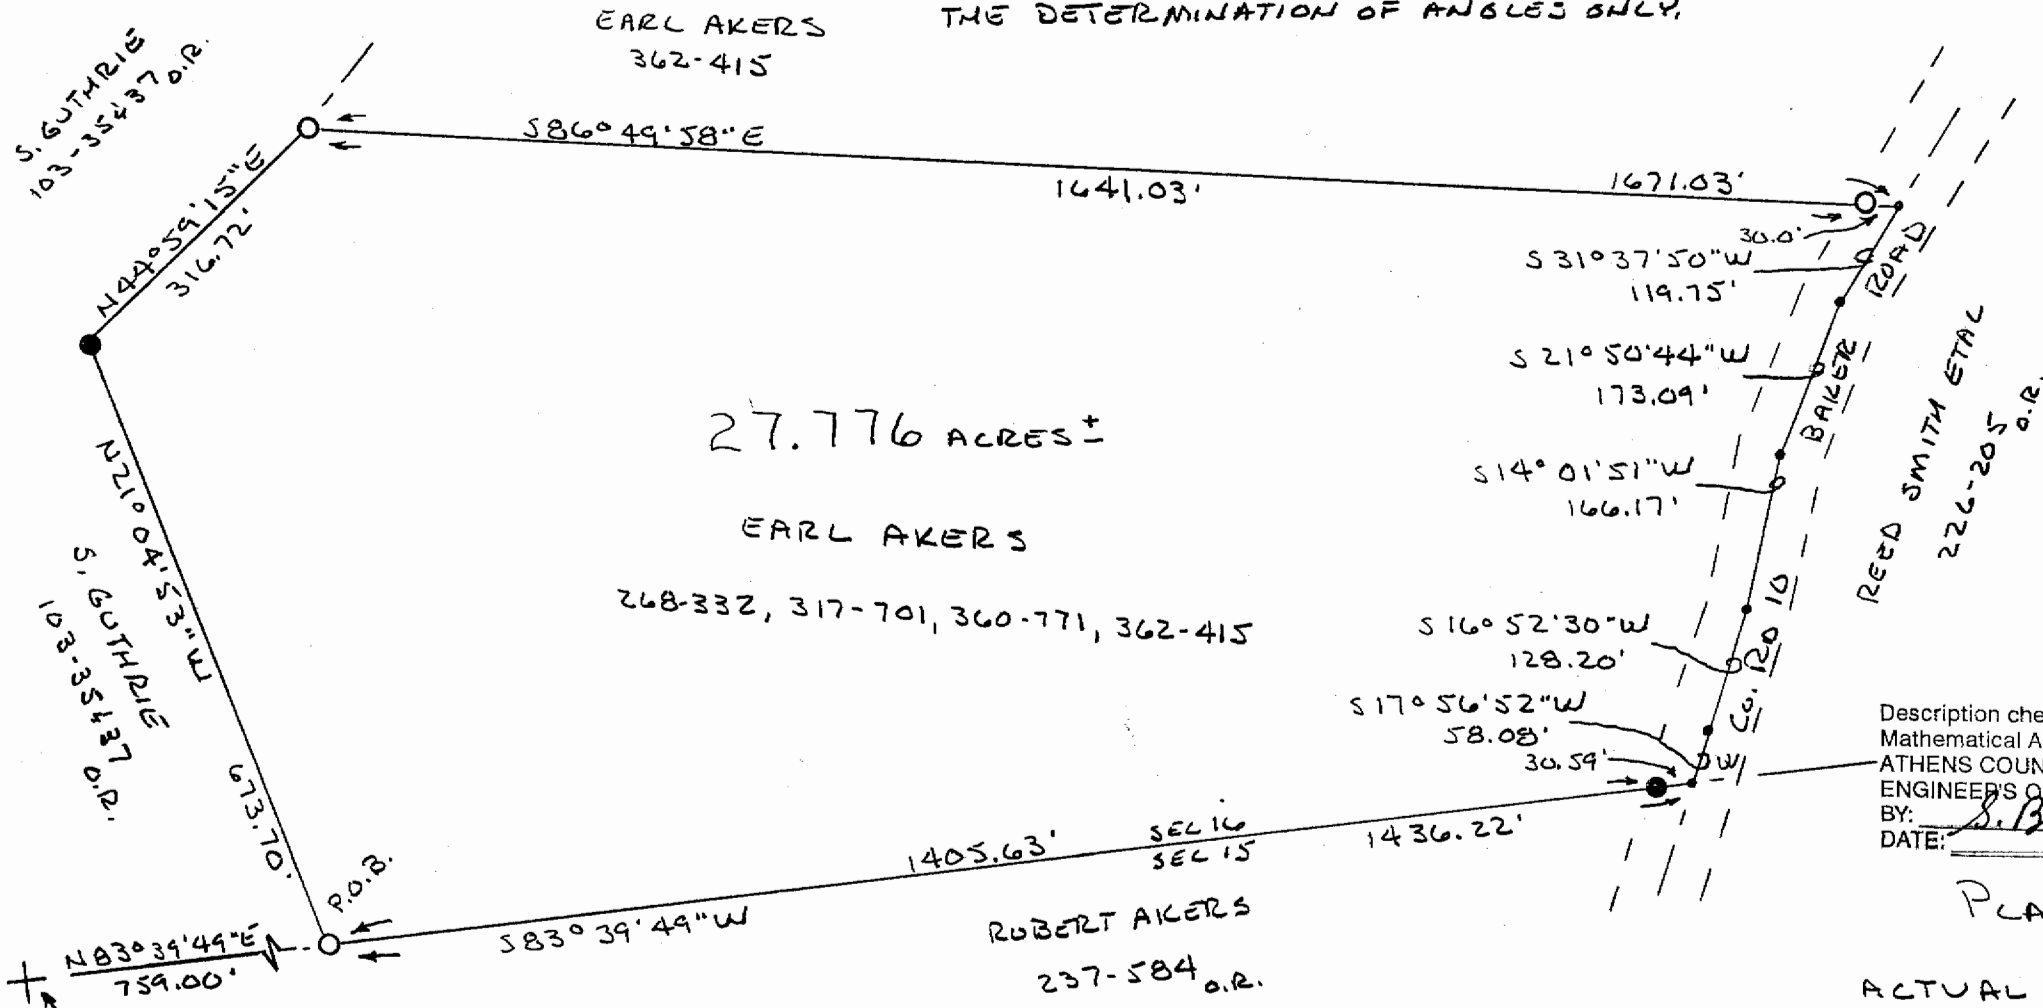 THE DETERMINATION OF ANGLES ONLY.
EARL AKERS
362-415
S. GUTHRIE
103-35437 O.R.
S86°49'58"E
1641.03'
1671.03'
30.0'
N44°59'15"E
316.72'
S31°37'50"W
119.75'
S21°50'44"W
173.09'
S14°01'51"W
166.17'
S16°52'30"W
128.20'
S17°56'52"W
58.08'
30.59'
CO. RD 10 BAKER ROAD
R/W
REED SMITH ETAL
226-205 O.R.
27.776 ACRES±
EARL AKERS
268-332, 317-701, 360-771, 362-415
N21°04'53"W
673.70'
S. GUTHRIE
103-35437 O.R.
P.O.B.
N83°39'49"E
759.00'
S83°39'49"W
1405.63'
SEC 16
SEC 15
1436.22'
ROBERT AKERS
237-584 O.R.
Description che
Mathematical A
ATHENS COUN
ENGINEER'S O
BY: S. B
DATE:
PLA
ACTUAL